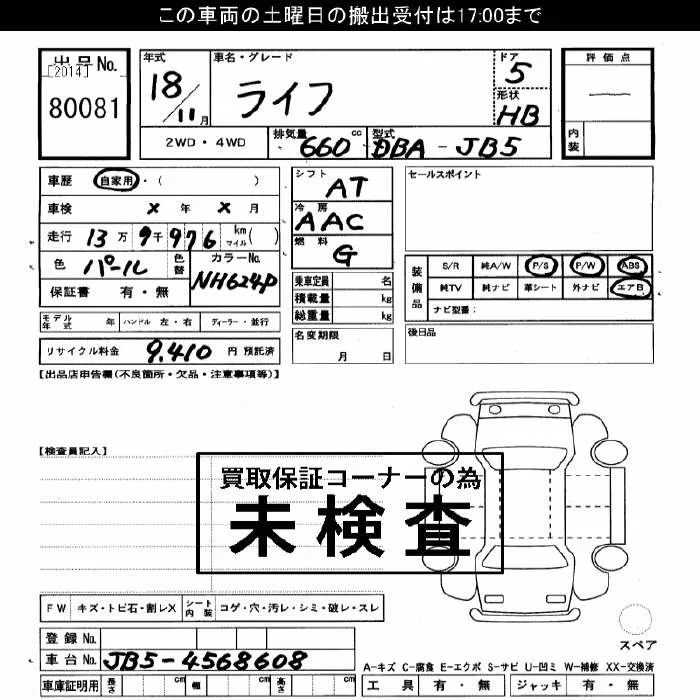 この車両の土曜日の搬出受付は17:00まで
出品No.
[2014]
80081
年式
18/11月
車名・グレード
ライフ
ドア
5
形状
HB
評価点
—
内装
2WD・4WD
排気量 660 cc
型式 DBA - JB5
車歴 自家用・( )
車検 × 年 × 月
走行 13万9千976 km マイル( )
色 パール 色替 カラーNo. NH624P
保証書 有・無
シフト
AT
冷房
AAC
燃料
G
乗車定員 名
積載量 kg
総重量 kg
セールスポイント
装備品
S/R 純A/W P/S P/W ABS
純TV 純ナビ 革シート 外ナビ エアB
ナビ型番:
モデル年式 年 ハンドル 左・右 ディーラー・並行
名変期限
月 日
後日品
リサイクル料金 9,410 円 預託済
【出品店申告欄(不良箇所・欠品・注意事項等)】
【検査員記入】
買取保証コーナーの為
未検査
FW キズ・トビ石・割レX シート内装 コゲ・穴・汚レ・シミ・破レ・スレ
スペア
登録No.
車台No. JB5-4568608
A-キズ C-腐食 E-エクボ S-サビ U-凹ミ W-補修 XX-交換済
車庫証明用 長さ cm 幅 cm 高さ cm
工具 有・無 ジャッキ 有・無